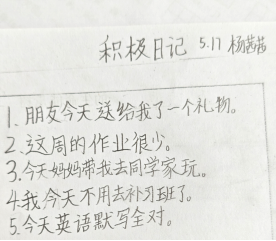 积极日记 5.17 杨茜茜
1.朋友今天送给我了一个礼物。
2.这周的作业很少。
3.今天妈妈带我去同学家玩。
4.我今天不用去补习班了。
5.今天英语默写全对。